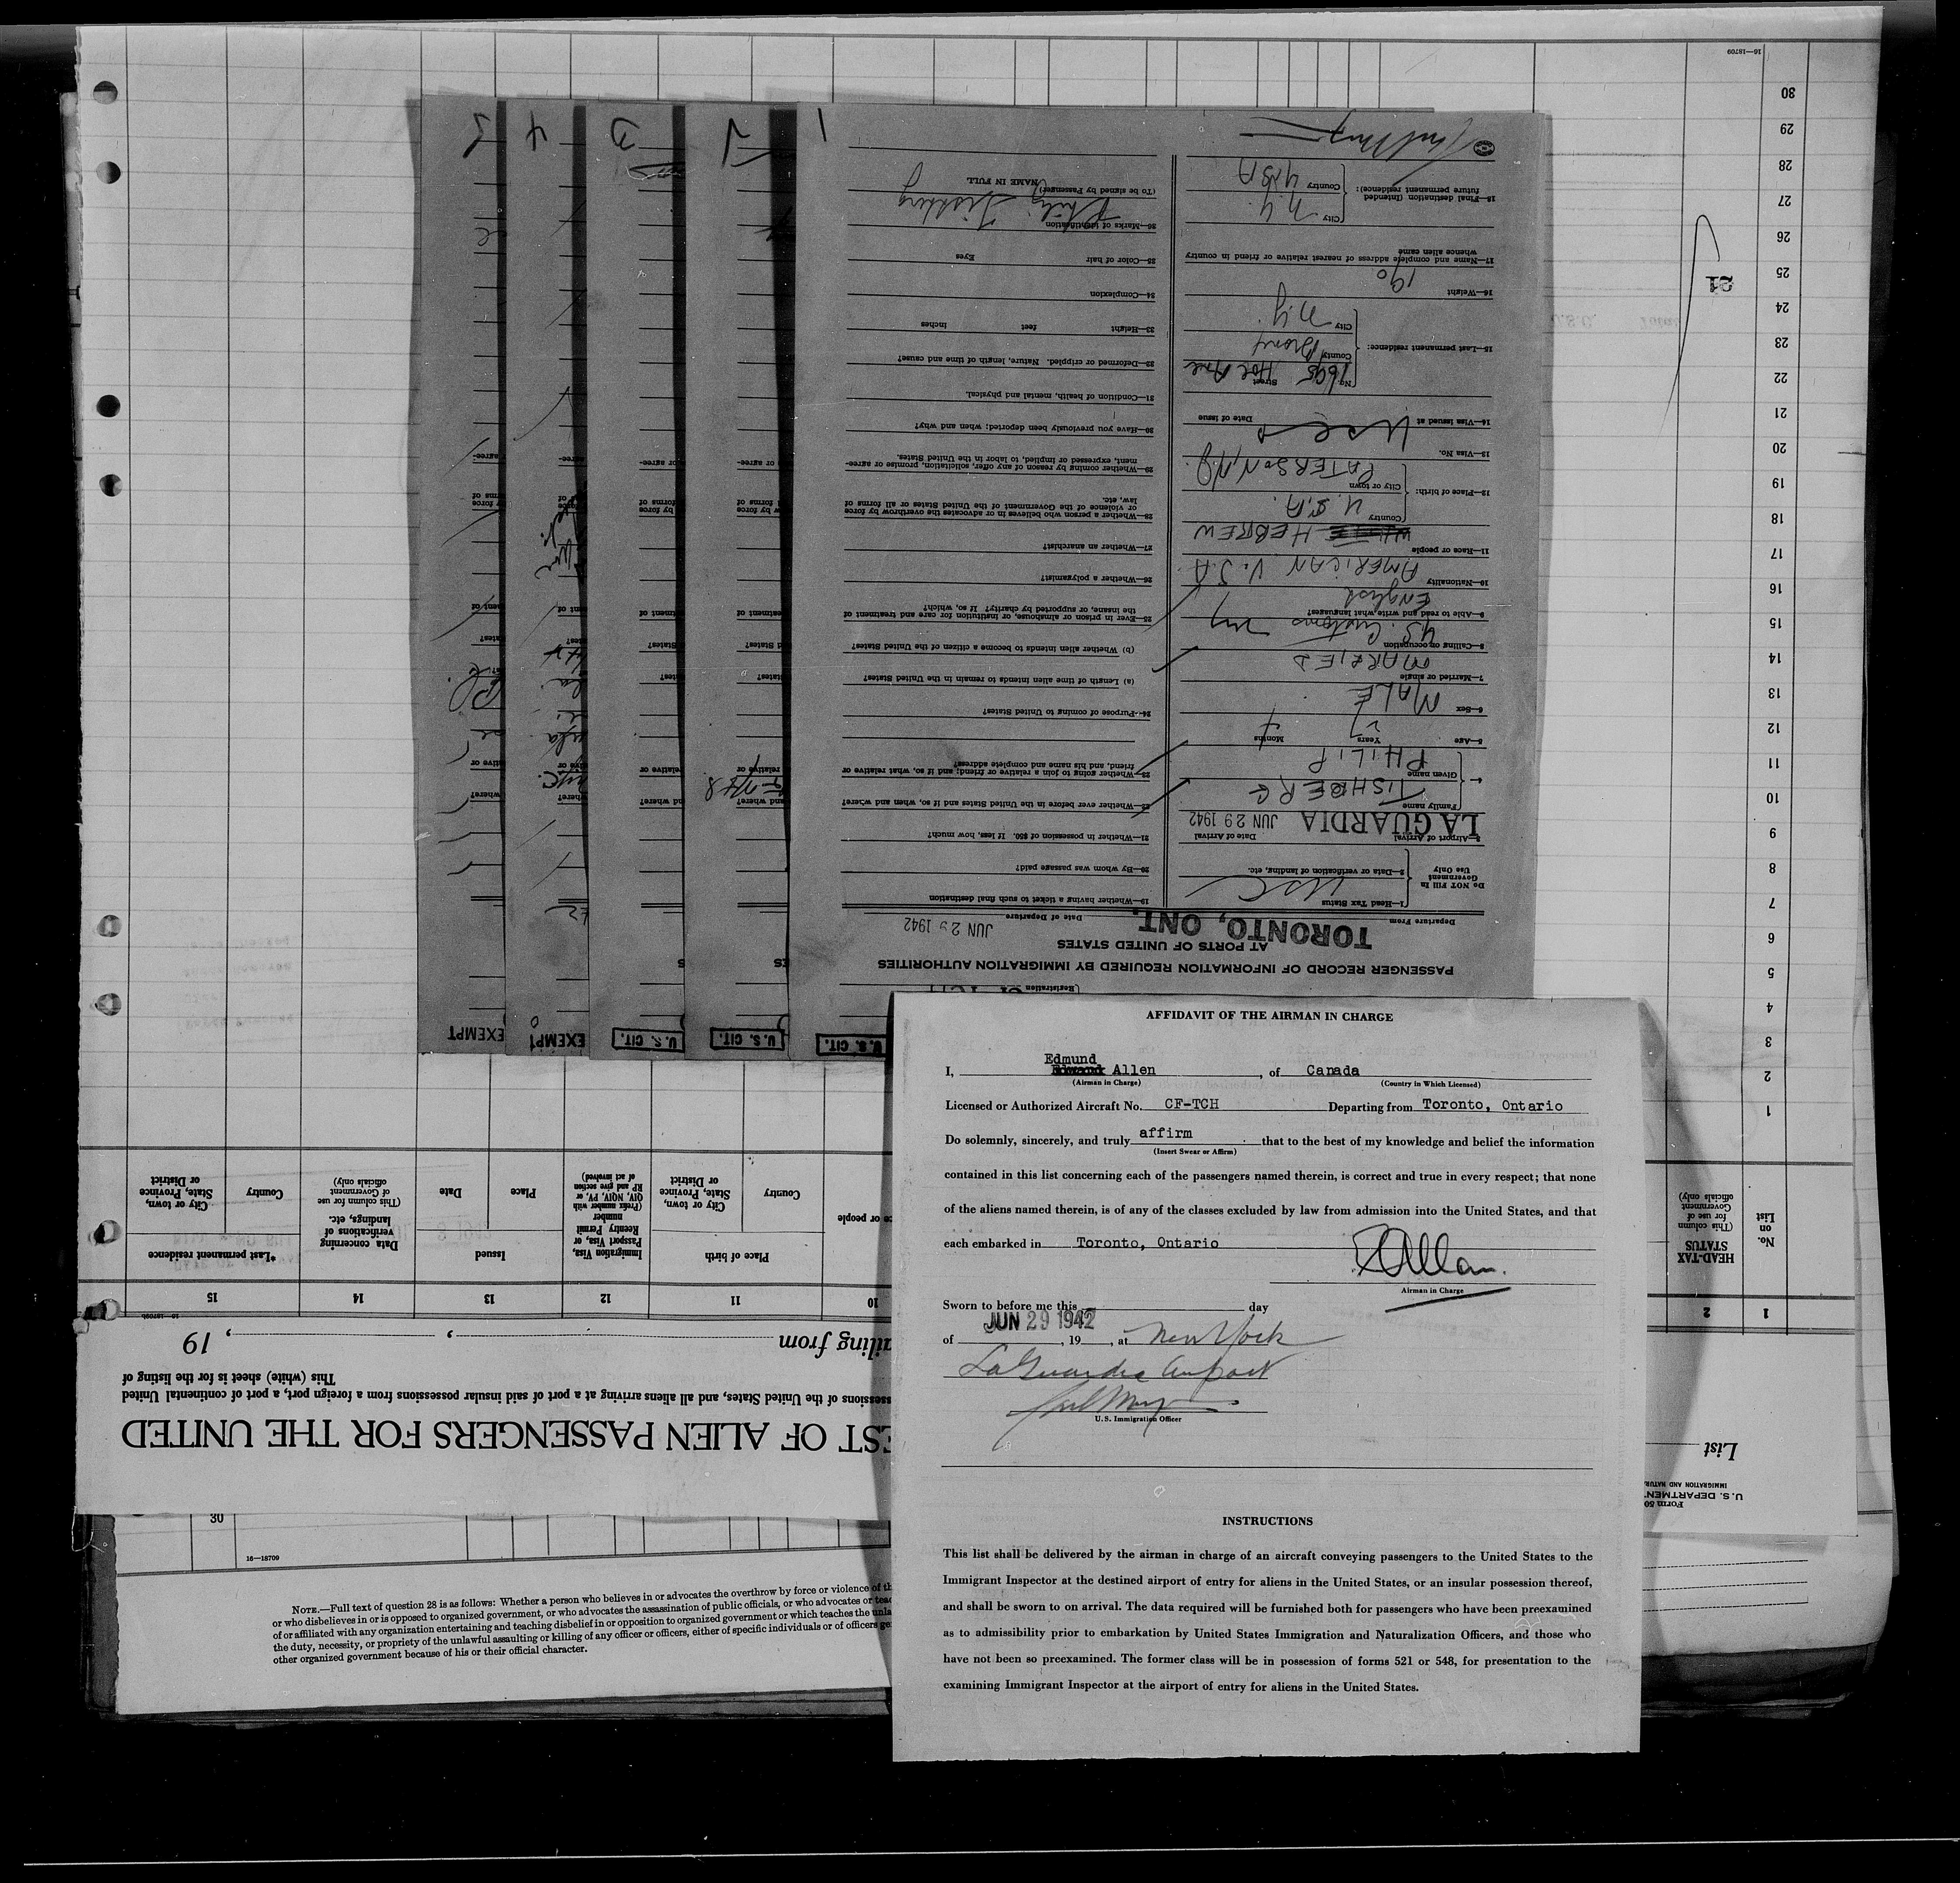 AFFIDAVIT OF THE AIRMAN IN CHARGE
Edmund
I, Allen, of Canada
(Airman in Charge) (Country in Which Licensed)
Licensed or Authorized Aircraft No. CF-TCH Departing from Toronto, Ontario
Do solemnly, sincerely, and truly affirm that to the best of my knowledge and belief the information
(Insert Swear or Affirm)
contained in this list concerning each of the passengers named therein, is correct and true in every respect; that none
of the aliens named therein, is of any of the classes excluded by law from admission into the United States, and that
each embarked in Toronto, Ontario
EAllan.
Airman in Charge
Sworn to before me this day
JUN 29 1942
of , 19 , at New York
LaGuardia Airport
U.S. Immigration Officer
INSTRUCTIONS
This list shall be delivered by the airman in charge of an aircraft conveying passengers to the United States to the
Immigrant Inspector at the destined airport of entry for aliens in the United States, or an insular possession thereof,
and shall be sworn to on arrival. The data required will be furnished both for passengers who have been preexamined
as to admissibility prior to embarkation by United States Immigration and Naturalization Officers, and those who
have not been so preexamined. The former class will be in possession of forms 521 or 548, for presentation to the
examining Immigrant Inspector at the airport of entry for aliens in the United States.
U.S. CIT.
U.S. CIT.
U.S. CIT.
EXEMPT
EXEMPT
Registration
PASSENGER RECORD OF INFORMATION REQUIRED BY IMMIGRATION AUTHORITIES
AT PORTS OF UNITED STATES
TORONTO, ONT. JUN 29 1942
Departure From Date of Departure
Do NOT Fill In
Government
Use Only
1—Head Tax Status USC
2—Data or verification of landing, etc.
3—Airport of Arrival Date of Arrival
LA GUARDIA JUN 29 1942
4— Family name TISHBERG
Given name PHILIP
5—Age Years 27 Months 4
6—Sex MALE
7—Married or single MARRIED
8—Calling or occupation U.S. Customs
9—Able to read and write what languages? English
10—Nationality AMERICAN U.S.A.
11—Race or people HEBREW
12—Place of birth: Country U.S.A.
City or town PATERSON, N.J.
13—Visa No.
14—Visa issued at Date of issue
15—Last permanent residence: No. 1695 Street Hoe Ave
County Bronx
City N.Y.
16—Weight 190
17—Name and complete address of nearest relative or friend in country
whence alien came
18—Final destination (Intended
future permanent residence): City N.Y.
Country USA
19—Whether having a ticket to such final destination
20—By whom was passage paid?
21—Whether in possession of $50. If less, how much?
22—Whether ever before in the United States and if so, when and where?
23—Whether going to join a relative or friend; and if so, what relative or
friend, and his name and complete address?
24—Purpose of coming to United States?
(a) Length of time alien intends to remain in the United States?
(b) Whether alien intends to become a citizen of the United States?
25—Ever in prison or almshouse, or institution for care and treatment of
the insane, or supported by charity? If so, which?
26—Whether a polygamist?
27—Whether an anarchist?
28—Whether a person who believes in or advocates the overthrow by force
or violence of the Government of the United States or all forms of
law, etc.
29—Whether coming by reason of any offer, solicitation, promise or agree-
ment, expressed or implied, to labor in the United States.
30—Have you previously been deported; when and why?
31—Condition of health, mental and physical.
32—Deformed or crippled. Nature, length of time and cause?
33—Height feet inches
34—Complexion
35—Color of hair Eyes
36—Marks of identification
Philip Tishberg
(To be signed by Passenger) NAME IN FULL
1
2
3
4
5
List
U.S. DEPARTMENT
IMMIGRATION AND NATUR
ST OF ALIEN PASSENGERS FOR THE UNITED
sessions of the United States, and all aliens arriving at a port of said insular possessions from a foreign port, a port of continental United
This (white) sheet is for the listing of
ailing from , , 19
1 2 10 11 12 13 14 15
No. on List
HEAD-TAX STATUS
(This column for use of Government officials only)
ce or people
Place of birth
Country
City or town, State, Province or District
Immigration Visa, Passport Visa, or Reentry Permit number
(Prefix number with QIV, NQIV, PV, or RP and give section of act involved)
Issued
Place
Date
Data concerning verifications of landings, etc.
(This column for use of Government officials only)
*Last permanent residence
Country
City or town, State, Province or District
1
2
3
4
5
6
7
8
9
10
11
12
13
14
15
16
17
18
19
20
21
22
23
24
25
26
27
28
29
30
21
16—18709
30
16—18709
NOTE.—Full text of question 28 is as follows: Whether a person who believes in or advocates the overthrow by force or violence of th
or who disbelieves in or is opposed to organized government, or who advocates the assassination of public officials, or who advocates or teac
of or affiliated with any organization entertaining and teaching disbelief in or opposition to organized government or which teaches the unla
the duty, necessity, or propriety of the unlawful assaulting or killing of any officer or officers, either of specific individuals or of officers ge
other organized government because of his or their official character.